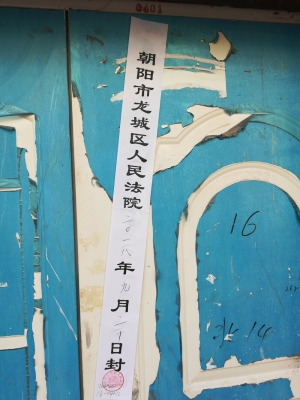 0601
朝阳市龙城区人民法院二〇一八年九月二十日封
16